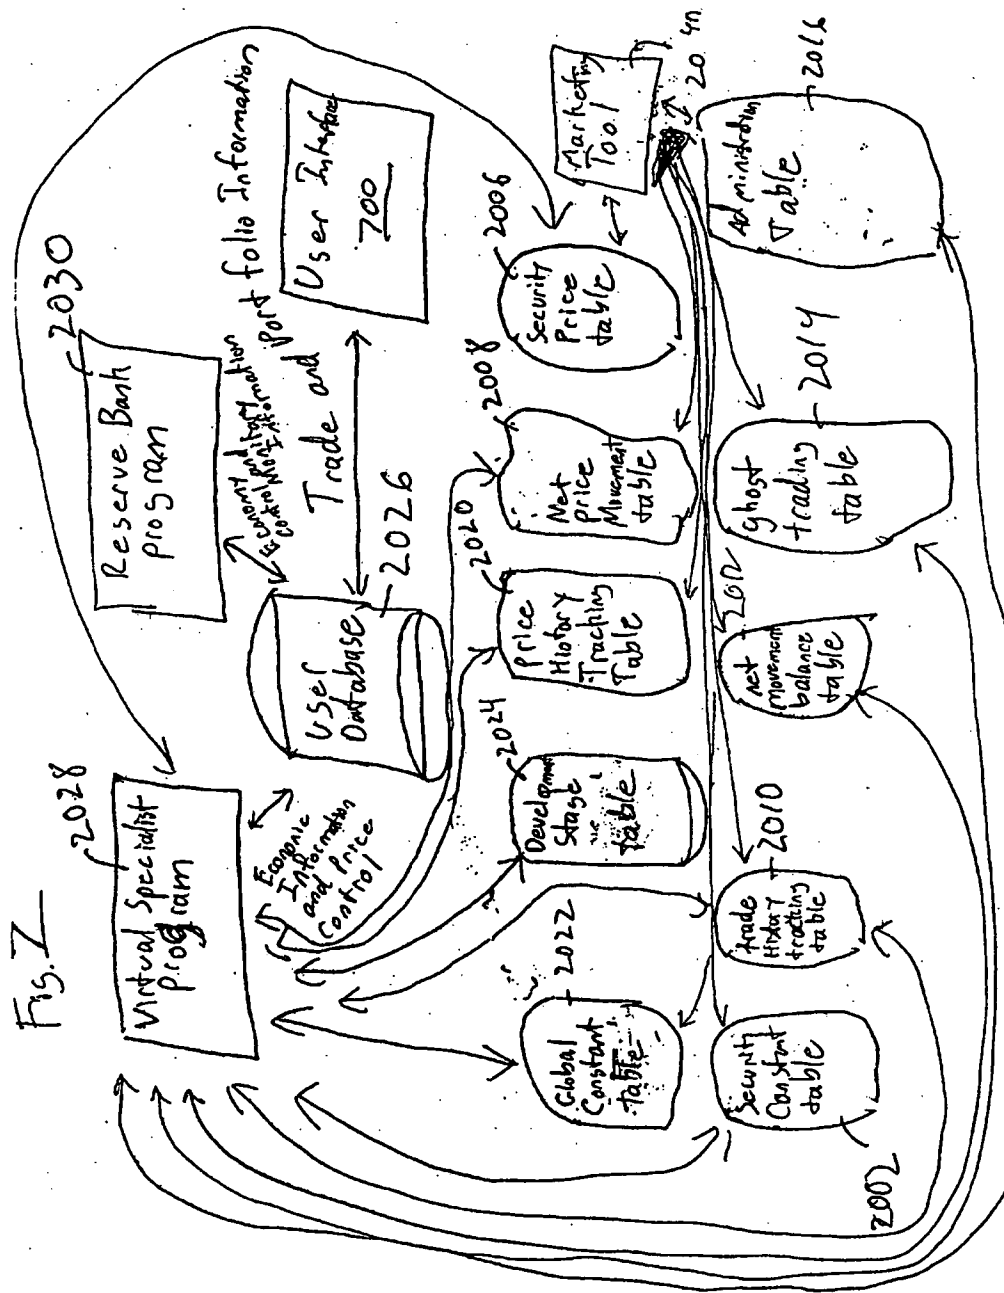 Fig. 7
2028
Virtual Specialist
program
2030
Reserve Bank
program
Economy
control
Monitary
Information
Economic
Information
and Price
Control
User
Database
2026
Trade and Portfolio Information
User Interface
700
2022
Global
Constant
table
2024
Development
Stage
table
2020
Price
History
Tracking
Table
2008
Net
Price
Movement
table
2006
Security
Price
table
Marketing
Tool
2002
Security
Constant
table
2010
trade
History
tracking
table
2012
net
movement
balance
table
2014
Ghost
trading
table
2016
Administration
Table